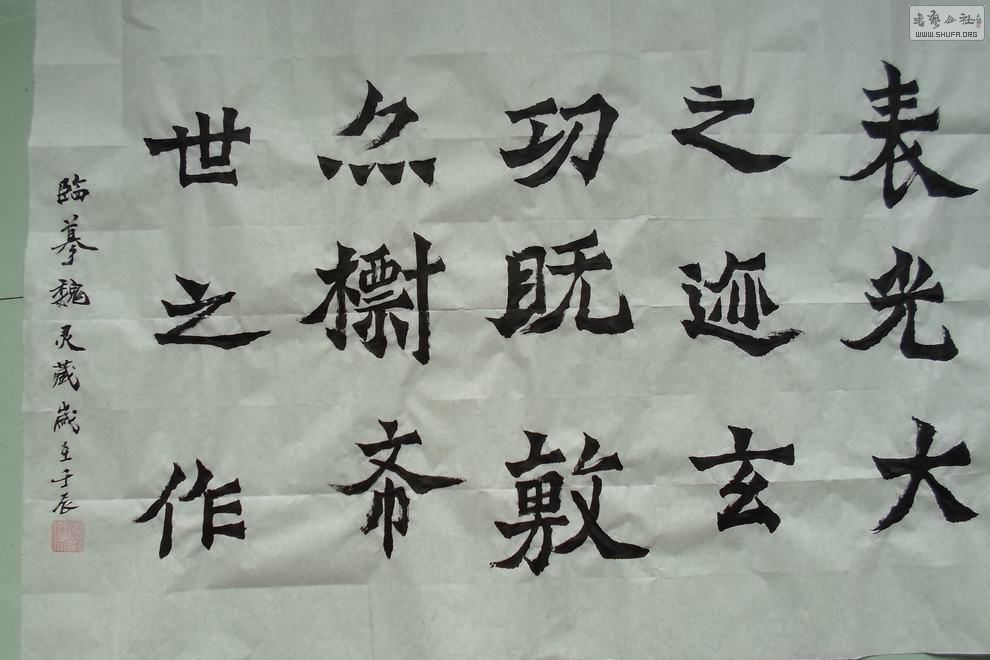 表光大
之迹玄
功既敷
亦標希
世之作
臨摹魏灵藏歲在壬辰
書藝公社
WWW.SHUFA.ORG